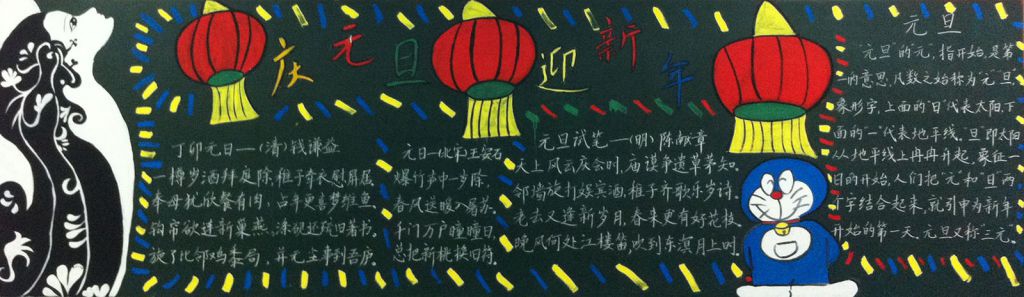 庆元旦迎新年
丁卯元日——(清)钱谦益
一樽步酒拜庭除,稚子牵衣慰屏居。
奉母犹欣餐有肉,占年更喜梦维鱼。
钩帘欲连新巢燕,涤砚还疏旧著书。
旋了比邻鸡黍局,并无尘事到吾庐。
元日——(北宋)王安石
爆竹声中一岁除,
春风送暖入屠苏。
千门万户曈曈日,
总把新桃换旧符。
元旦试笔——(明)陈献章
天上风云庆会时,庙谟争遣草茅知。
邻墙旋打娱宾酒,稚子齐歌乐岁诗。
老去又逢新岁月,春来更有好花枝。
晚风何处江楼笛,吹到东溟月上时。
元旦
"元旦"的"元",指开始,是第一
的意思,凡数之始称为"元",旦
象形字,上面的"日"代表太阳,下
面的"一"代表地平线。"旦"即太阳
从地平线上冉冉升起,象征一
日的开始,人们把"元"和"旦"两
个字结合起来,就引申为新年
开始的第一天。元旦又称三元。